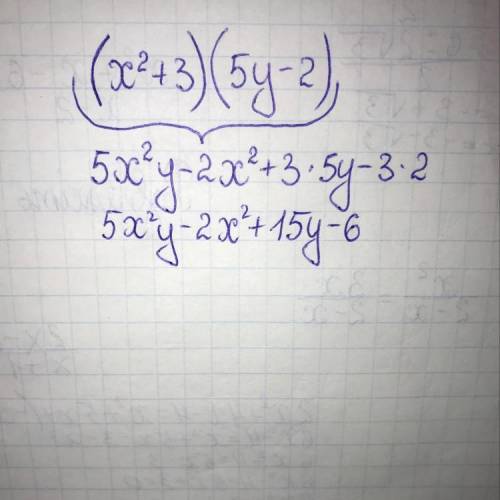 (x²+3)(5y-2)
5x²y-2x²+3·5y-3·2
5x²y-2x²+15y-6